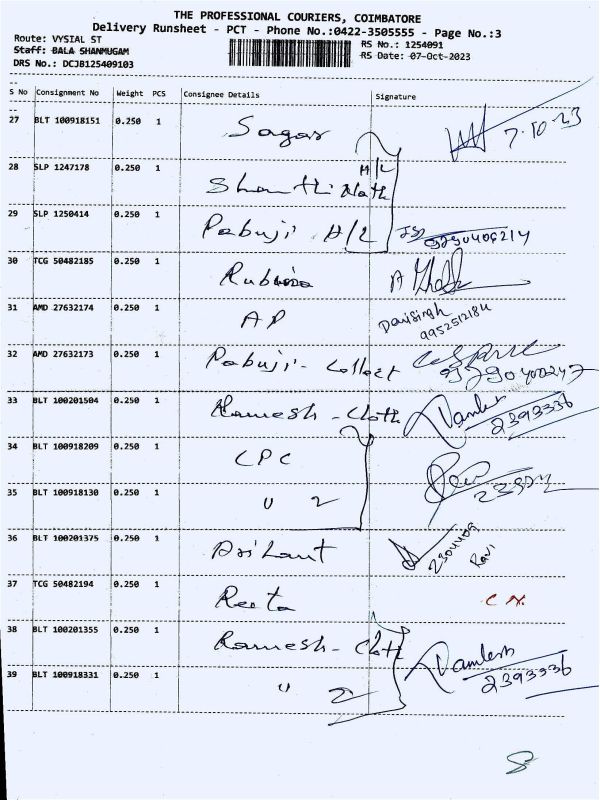 THE PROFESSIONAL COURIERS, COIMBATORE
Delivery Runsheet - PCT - Phone No.:0422-3505555 - Page No.:3
Route: VYSIAL ST
RS No.: 1254091
Staff: BALA SHANMUGAM
RS Date: 07-Oct-2023
DRS No.: DCJB125409103
S No Consignment No Weight PCS Consignee Details Signature
27 BLT 100918151 0.250 1 Sagar 7.10.23
28 SLP 1247178 0.250 1 Shanthi Nath H/L
29 SLP 1250414 0.250 1 Pabuji H/L
30 TCG 50482185 0.250 1
31 AMD 27632174 0.250 1 AP Davisingh
9952512184
32 AMD 27632173 0.250 1 Pabuji - Collect
33 BLT 100201504 0.250 1 Ramesh - Cloth
2393336
34 BLT 100918209 0.250 1 CPC
35 BLT 100918130 0.250 1 " 2
36 BLT 100201375 0.250 1 Arihant 2304409
Ravi
37 TCG 50482194 0.250 1 Reeta
38 BLT 100201355 0.250 1 Ramesh - Cloth
39 BLT 100918331 0.250 1 " 2 2393336